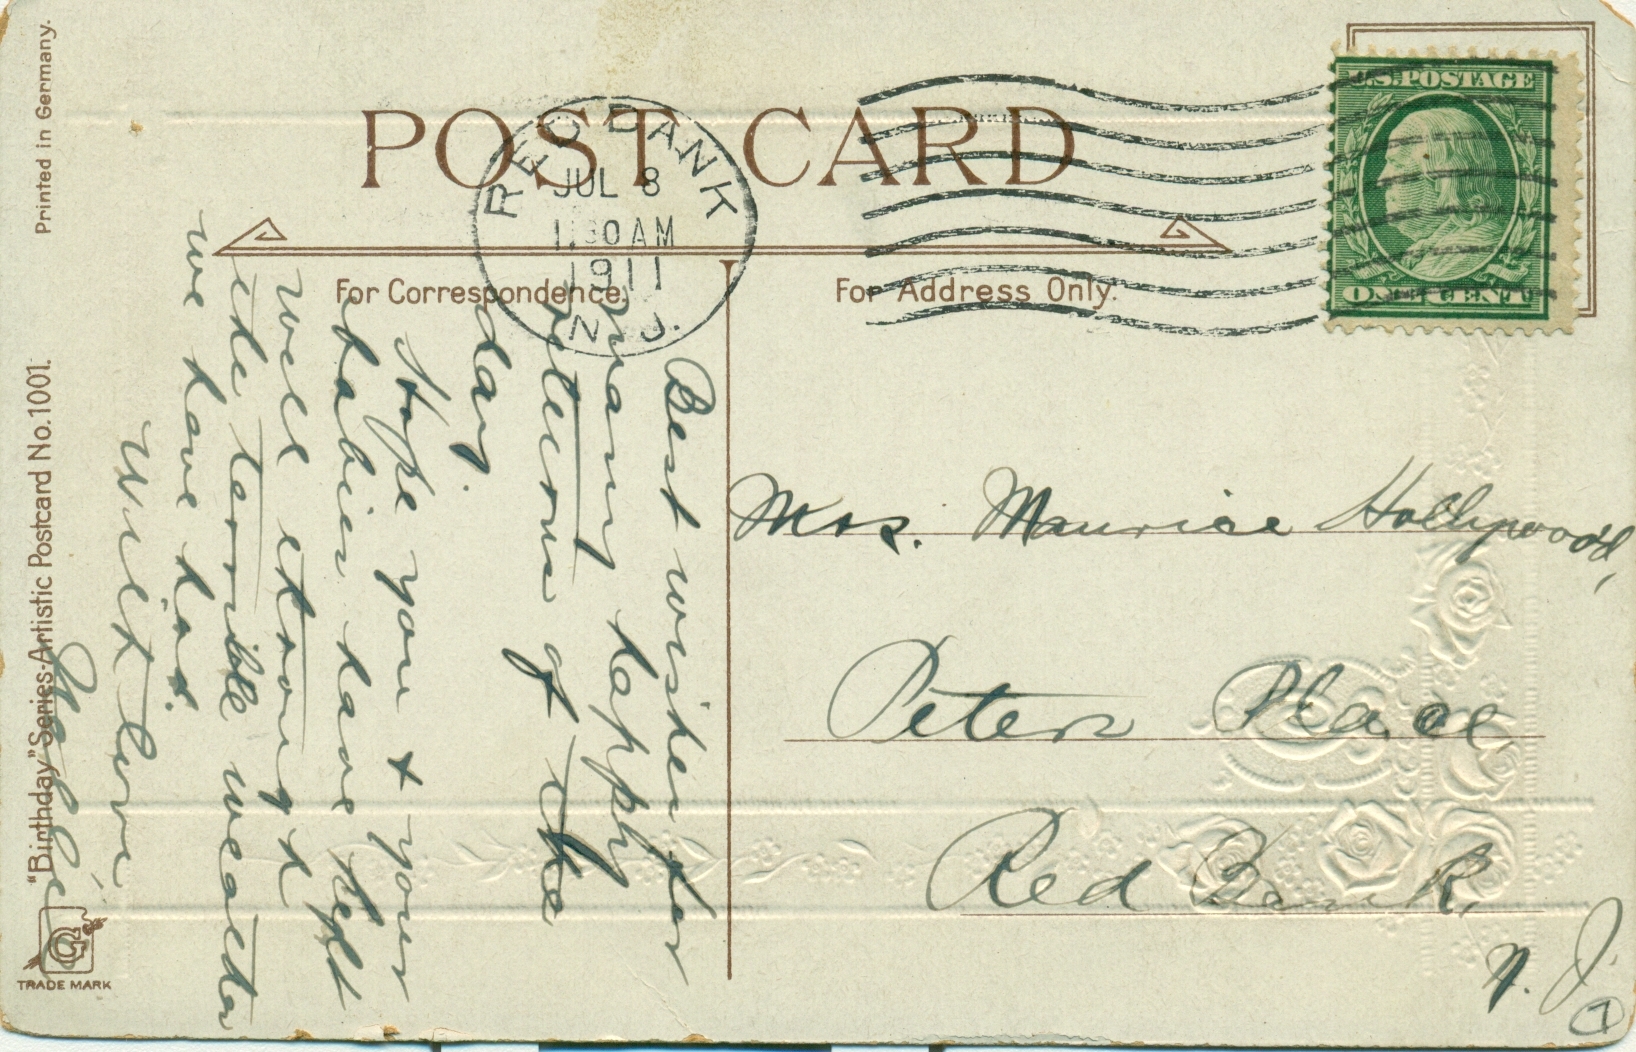 Printed in Germany.
"Birthday" Series-Artistic Postcard No. 1001.
G
TRADE MARK
POST CARD
RED BANK
JUL 8
1911
N.J.
U.S. POSTAGE
ONE CENT
For Correspondence.
For Address Only.
Best wishes for
many happy
returns of the
day.
Hope you & your
babies have kept
well through
the terrible weather
we have had.
With love
Mrs. Maurice Hollywood,
Peters Place
Red Bank,
N. J.